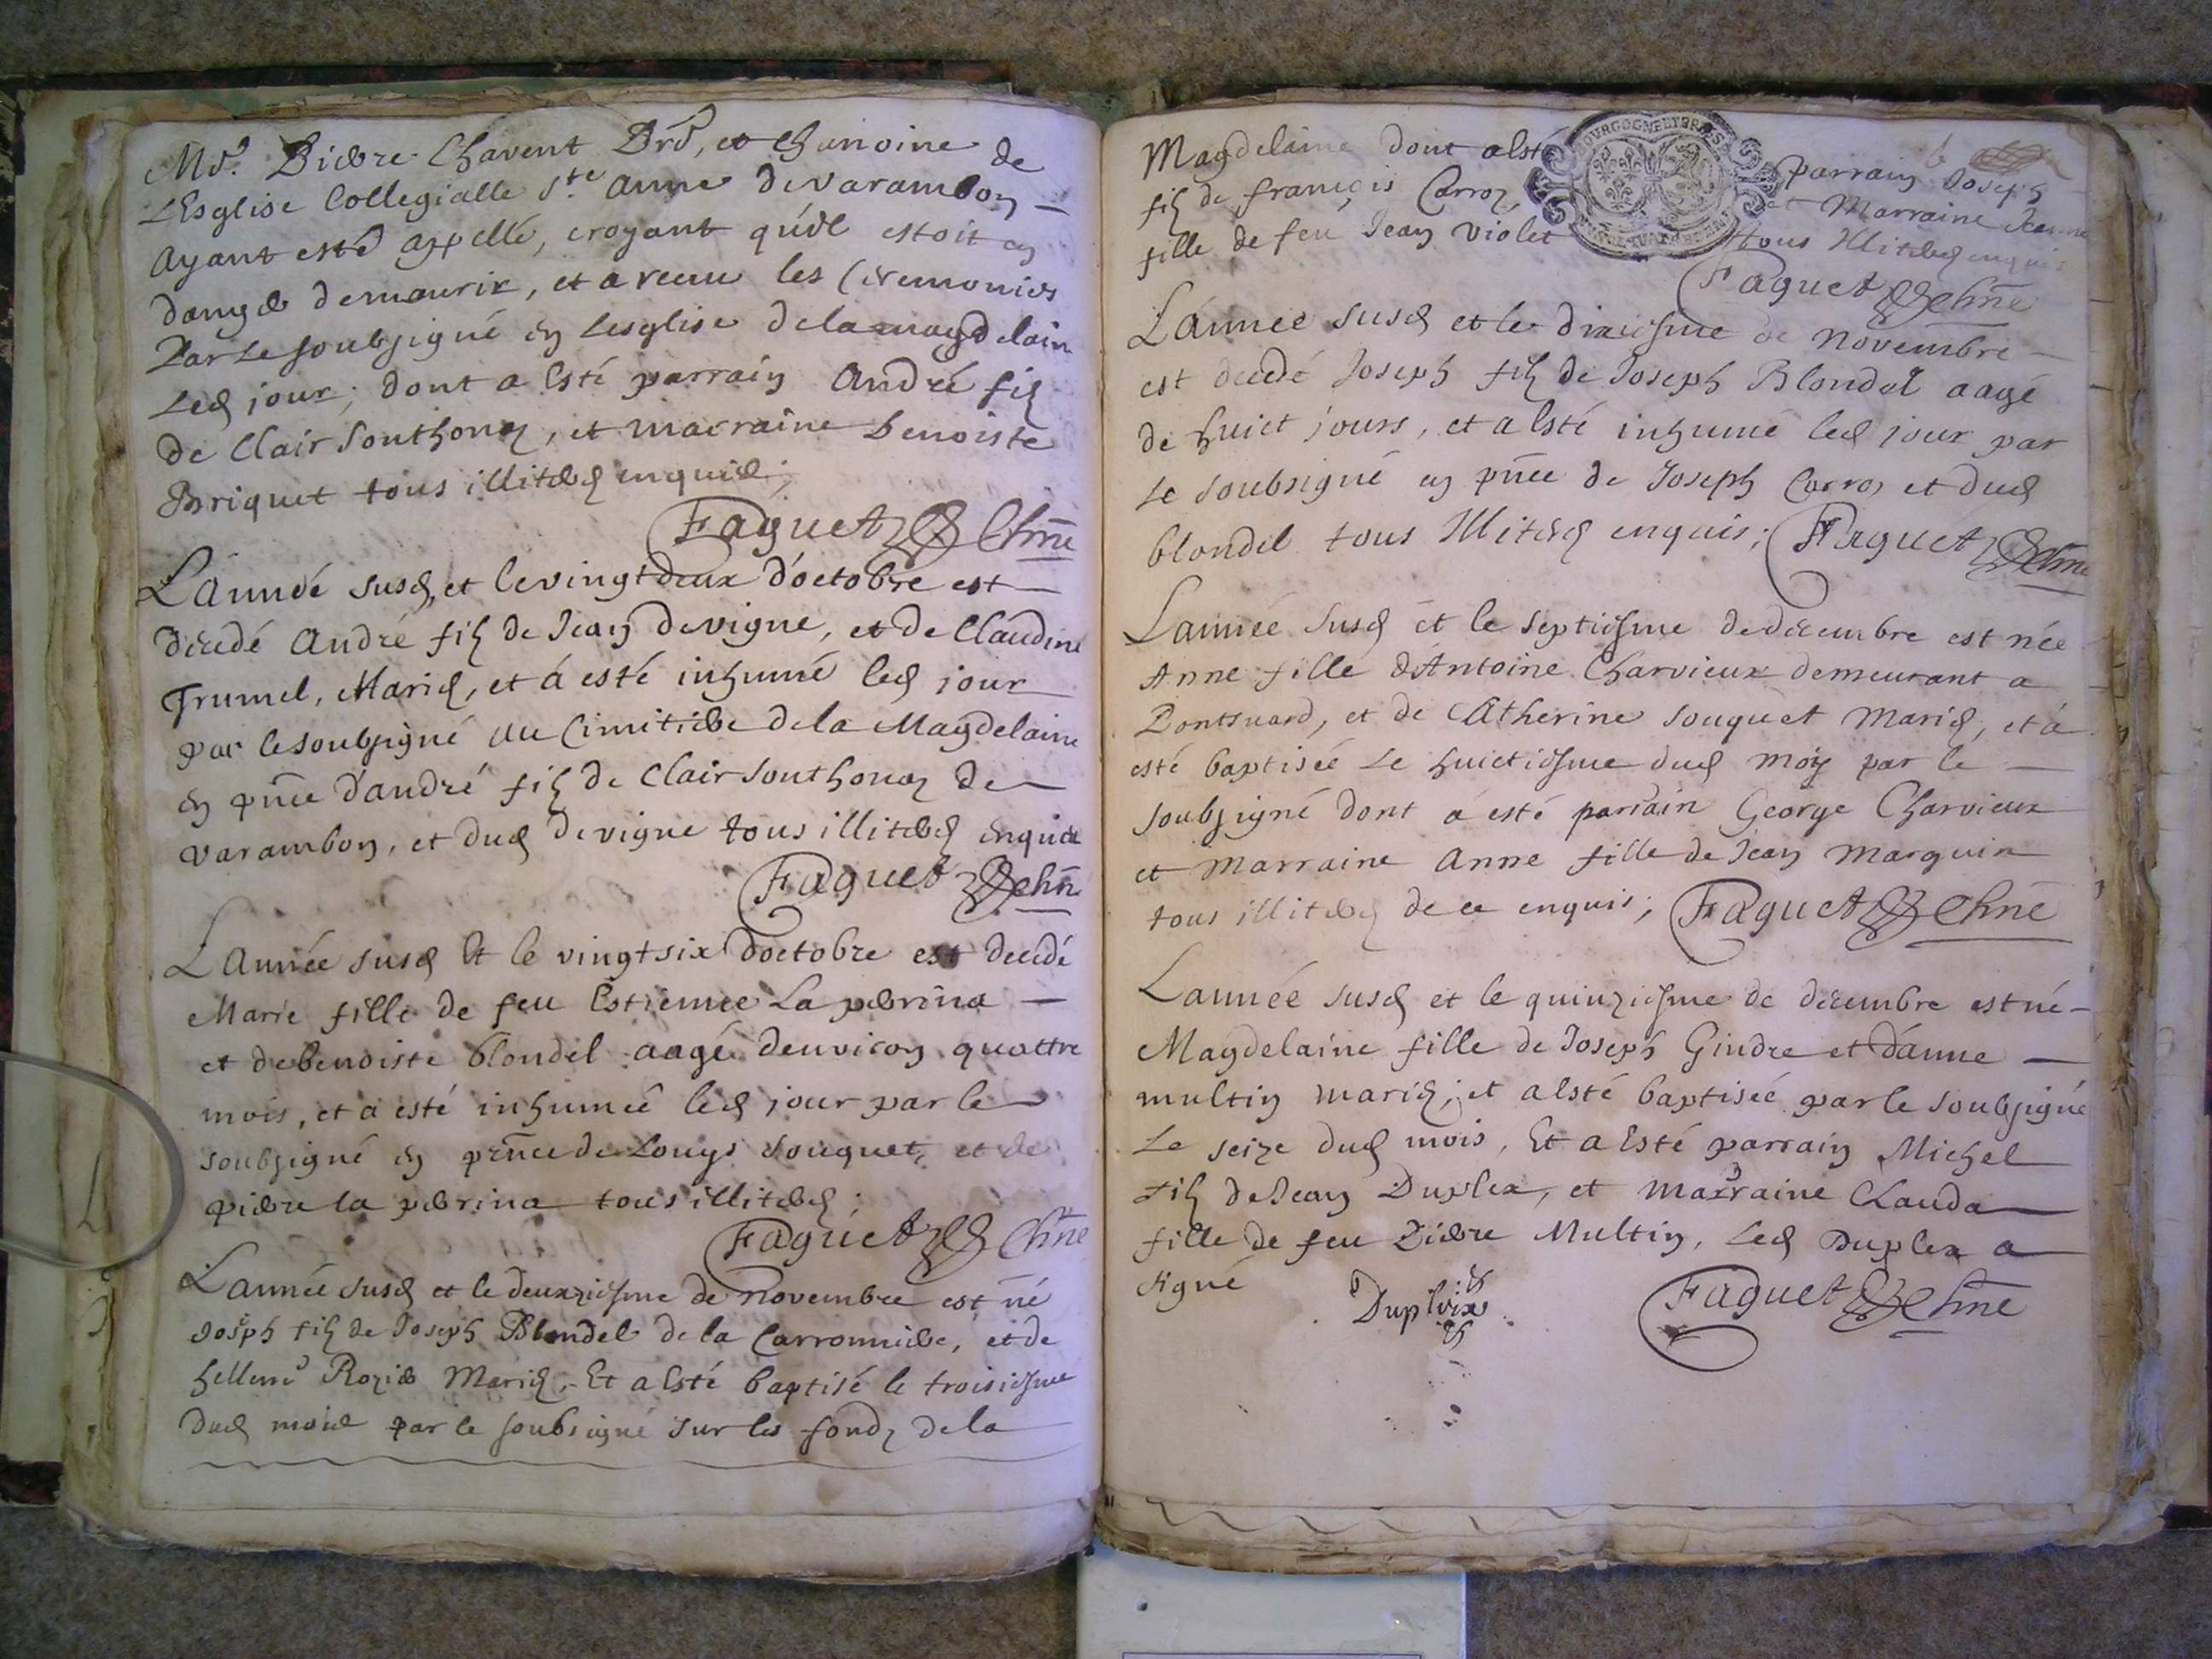 Mre. Pierre Chavent Pre, et Chanoine de
L'Esglise Collegialle Ste. Anne de varambon
ayant esté appellé, croyant qu'il estoit en
danger de mourir, et a receu les Ceremonies
Par le soubsigné en Lesglise de la magdelaine
Led jour; dont a Esté parrain André filz
de Clair Southonaz, et marraine benoiste
Briquet tous illiterez enquis;
Faguet Chne
L'année susd, et le vingt deux d'octobre est
decedé André filz de Jean devigne, et de Claudine
Trumel, Mariez, et á esté inhumé led jour
par le soubsigné au Cimitiere de la Magdelaine
en pnce d'andré filz de Clair Southonaz de
varambon, et dud devigne tous illiterez enquis
Faguet Chne
L'année susd Et le vingt six d'octobre est decedé
Marie fille de feu Estienne La perrina
et de benoiste blondel aagé denviron quattre
mois, et a esté inhumeé led jour par le
soubsigné en prnce de Louys Souquet, et de
pierre la perrina tous illiterez;
Faguet Chne
L'année susd et le deuxziesme de novembre est né
Joseph filz de Joseph Blondel de la Carronniere, et de
hellene Rozier Mariez, Et a Esté baptisé le troisiesme
dud mois par le soubsigné sur les fondz de la
Magdelaine dont a Esté parrain Joseph
filz de françois Carroz, et Marraine Jeanne
fille de feu Jean violet tous Illiterez enquis
BOURGOGNE
Faguet Chne
L'année susd et le dixiesme de novembre
est decedé Joseph filz de Joseph Blondel aagé
de huict jours, et a Esté inhumé led jour par
le soubsigné en pnce de Joseph Carroz et dud
blondel tous Illiterez enquis; Faguet Chne
L'année susd et le septiesme de decembre est née
Anne fille d'Antoine Charvieux demeurant a
Pontsuard, et de Catherine Souquet Mariez, et á
esté baptisée le huictiesme dud moys par le
soubsigné dont á esté parrain George Charvieux
et Marraine Anne fille de Jean Marguin
tous illiterez de ce enquis; Faguet Chne
L'année susd et le quinziesme de decembre est né
Magdelaine fille de Joseph Gindre et d'anne
multin mariez; et a Esté baptisée par le soubsigné
Le seize dud mois, Et a Esté parrain Michel
filz de Jean Duplex, et marraine Clauda
fille de feu Pierre Multin, Led Duplex a
signé Duploix Faguet Chne